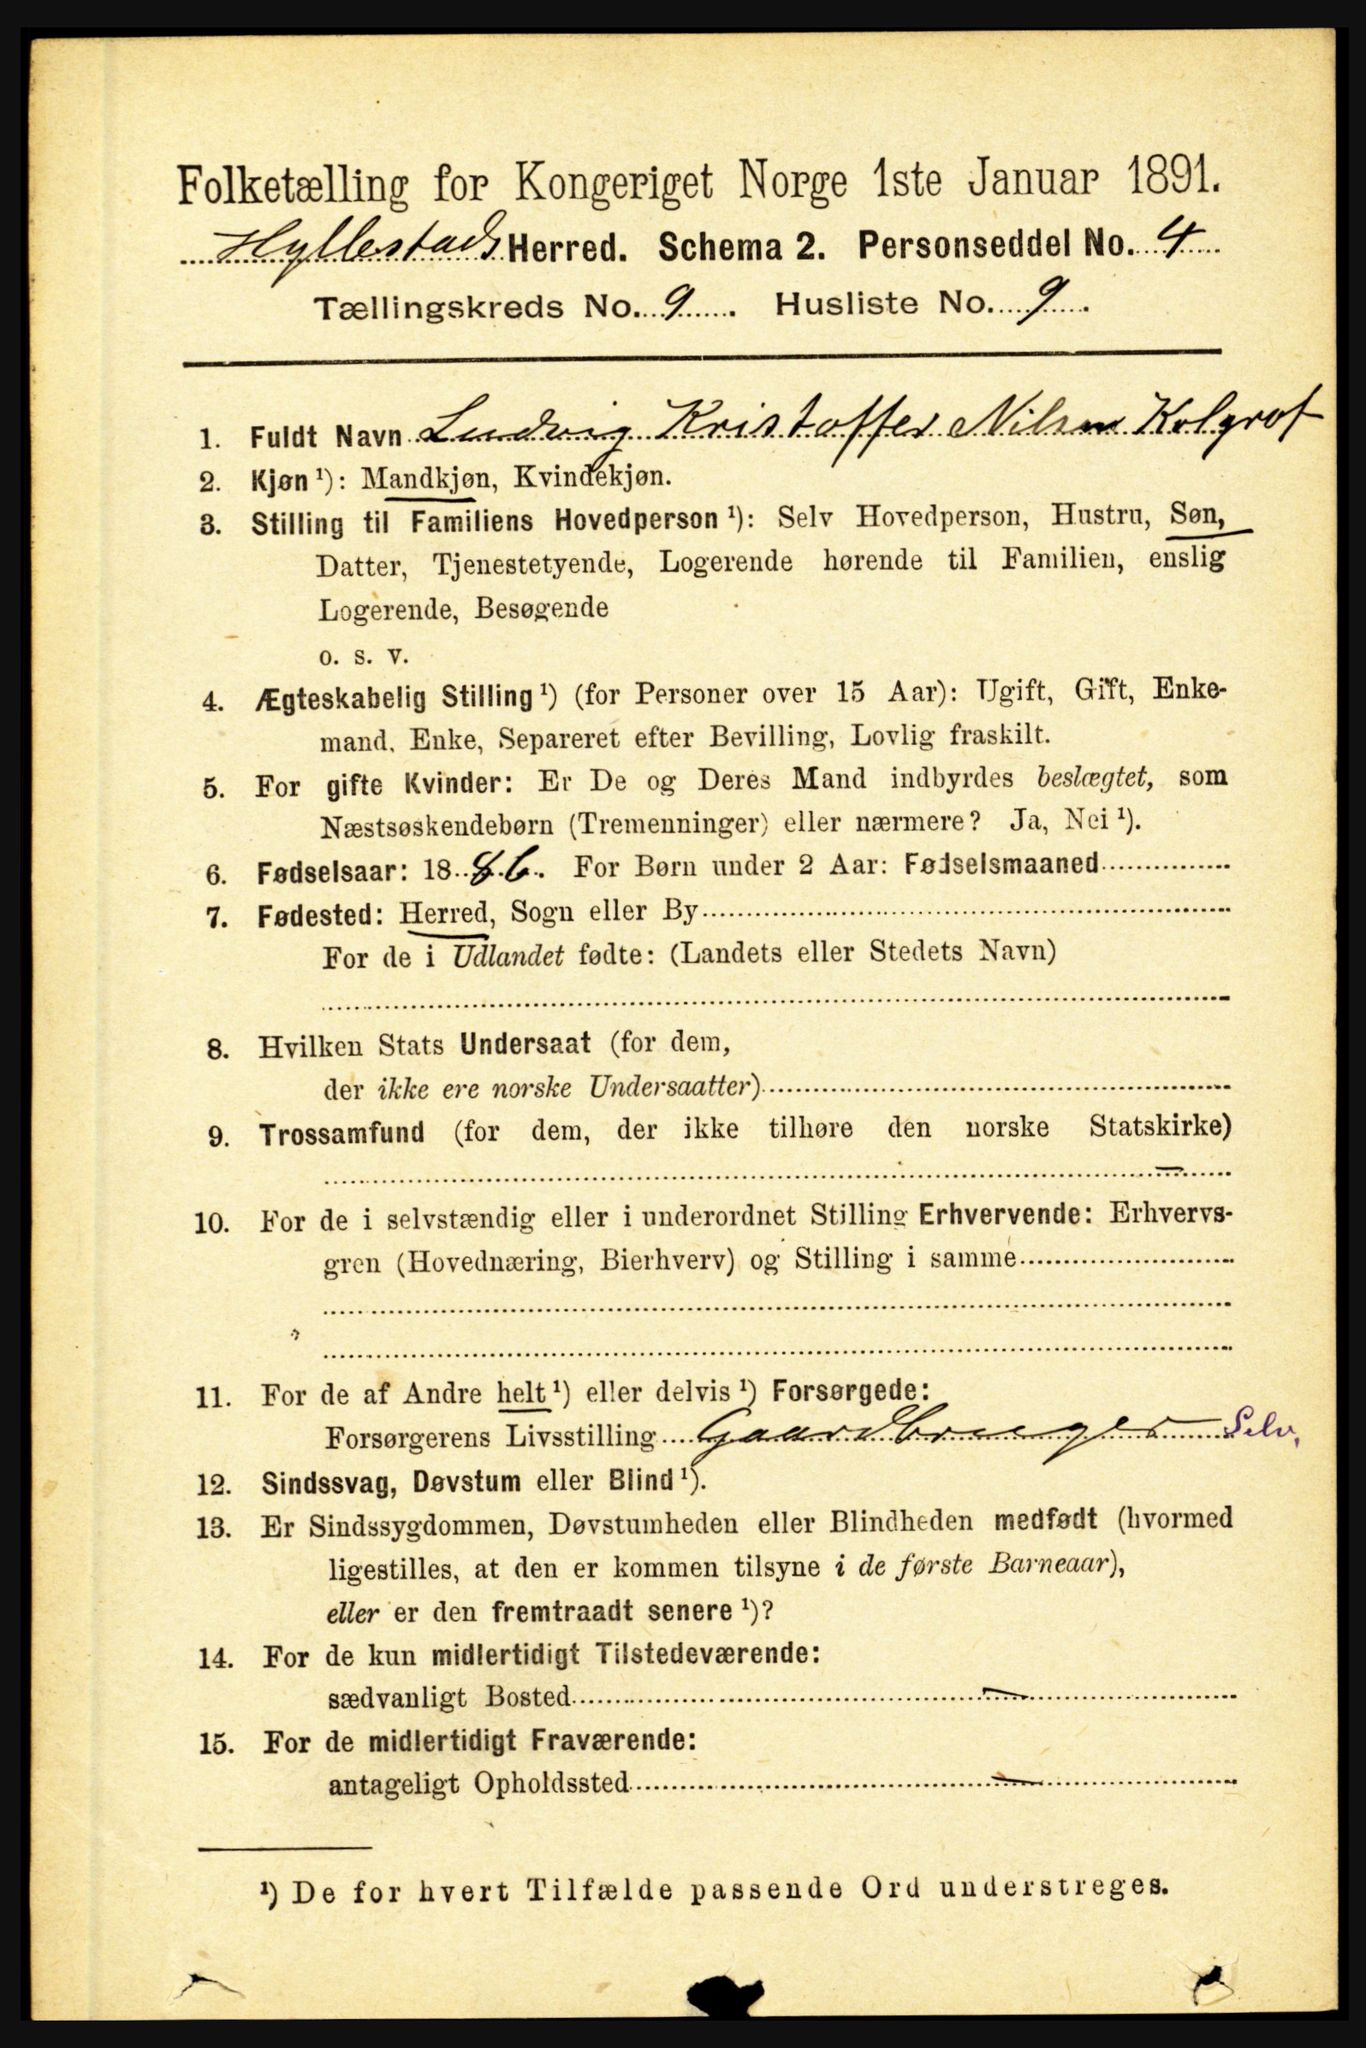 Folketælling for Kongeriget Norge 1ste Januar 1891.
Hyllestads Herred. Schema 2. Personseddel No. 4
Tællingskreds No. 9. Husliste No. 9.
1. Fuldt Navn Ludvig Kristoffer Nilsen Kolgrof
2. Kjøn ¹): Mandkjøn, Kvindekjøn.
3. Stilling til Familiens Hovedperson ¹): Selv Hovedperson, Hustru, Søn,
Datter, Tjenestetyende, Logerende hørende til Familien, enslig
Logerende, Besøgende
o. s. v.
4. Ægteskabelig Stilling ¹) (for Personer over 15 Aar): Ugift, Gift, Enke-
mand, Enke, Separeret efter Bevilling, Lovlig fraskilt.
5. For gifte Kvinder: Er De og Deres Mand indbyrdes beslægtet, som
Næstsøskendebørn (Tremenninger) eller nærmere? Ja, Nei ¹).
6. Fødselsaar: 1886. For Børn under 2 Aar: Fødselsmaaned
7. Fødested: Herred, Sogn eller By
For de i Udlandet fødte: (Landets eller Stedets Navn)
8. Hvilken Stats Undersaat (for dem,
der ikke ere norske Undersaatter)
9. Trossamfund (for dem, der ikke tilhøre den norske Statskirke)
—
10. For de i selvstændig eller i underordnet Stilling Erhvervende: Erhvervs-
gren (Hovednæring, Bierhverv) og Stilling i samme
11. For de af Andre helt ¹) eller delvis ¹) Forsørgede:
Forsørgerens Livsstilling Gaardbruger Selv.
12. Sindssvag, Døvstum eller Blind ¹).
13. Er Sindssygdommen, Døvstumheden eller Blindheden medfødt (hvormed
ligestilles, at den er kommen tilsyne i de første Barneaar),
eller er den fremtraadt senere ¹)?
14. For de kun midlertidigt Tilstedeværende:
sædvanligt Bosted —
15. For de midlertidigt Fraværende:
antageligt Opholdssted —
¹) De for hvert Tilfælde passende Ord understreges.